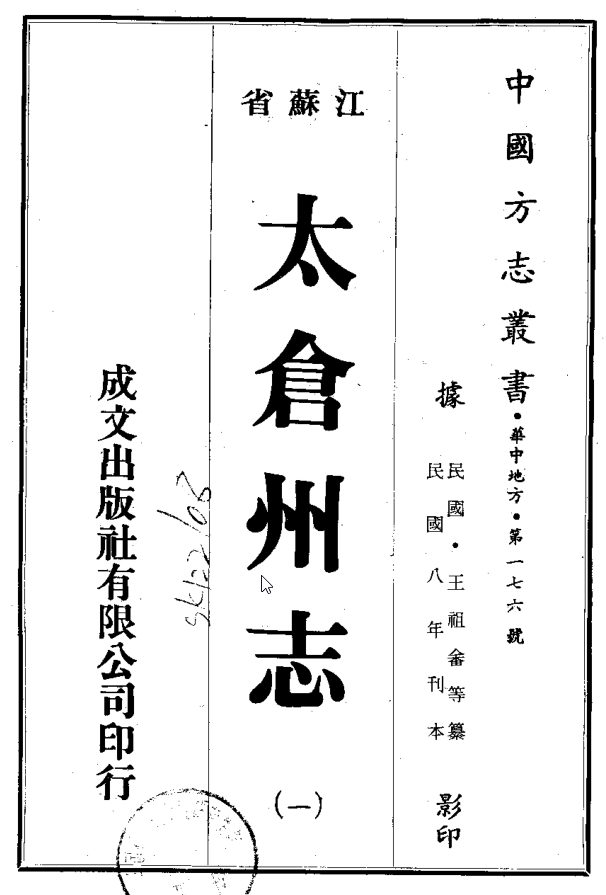 中國方志叢書・華中地方・第一七六號
據
民國・王祖畬等纂
民國八年刊本
影印
江蘇省
太倉州志
(一)
成文出版社有限公司印行